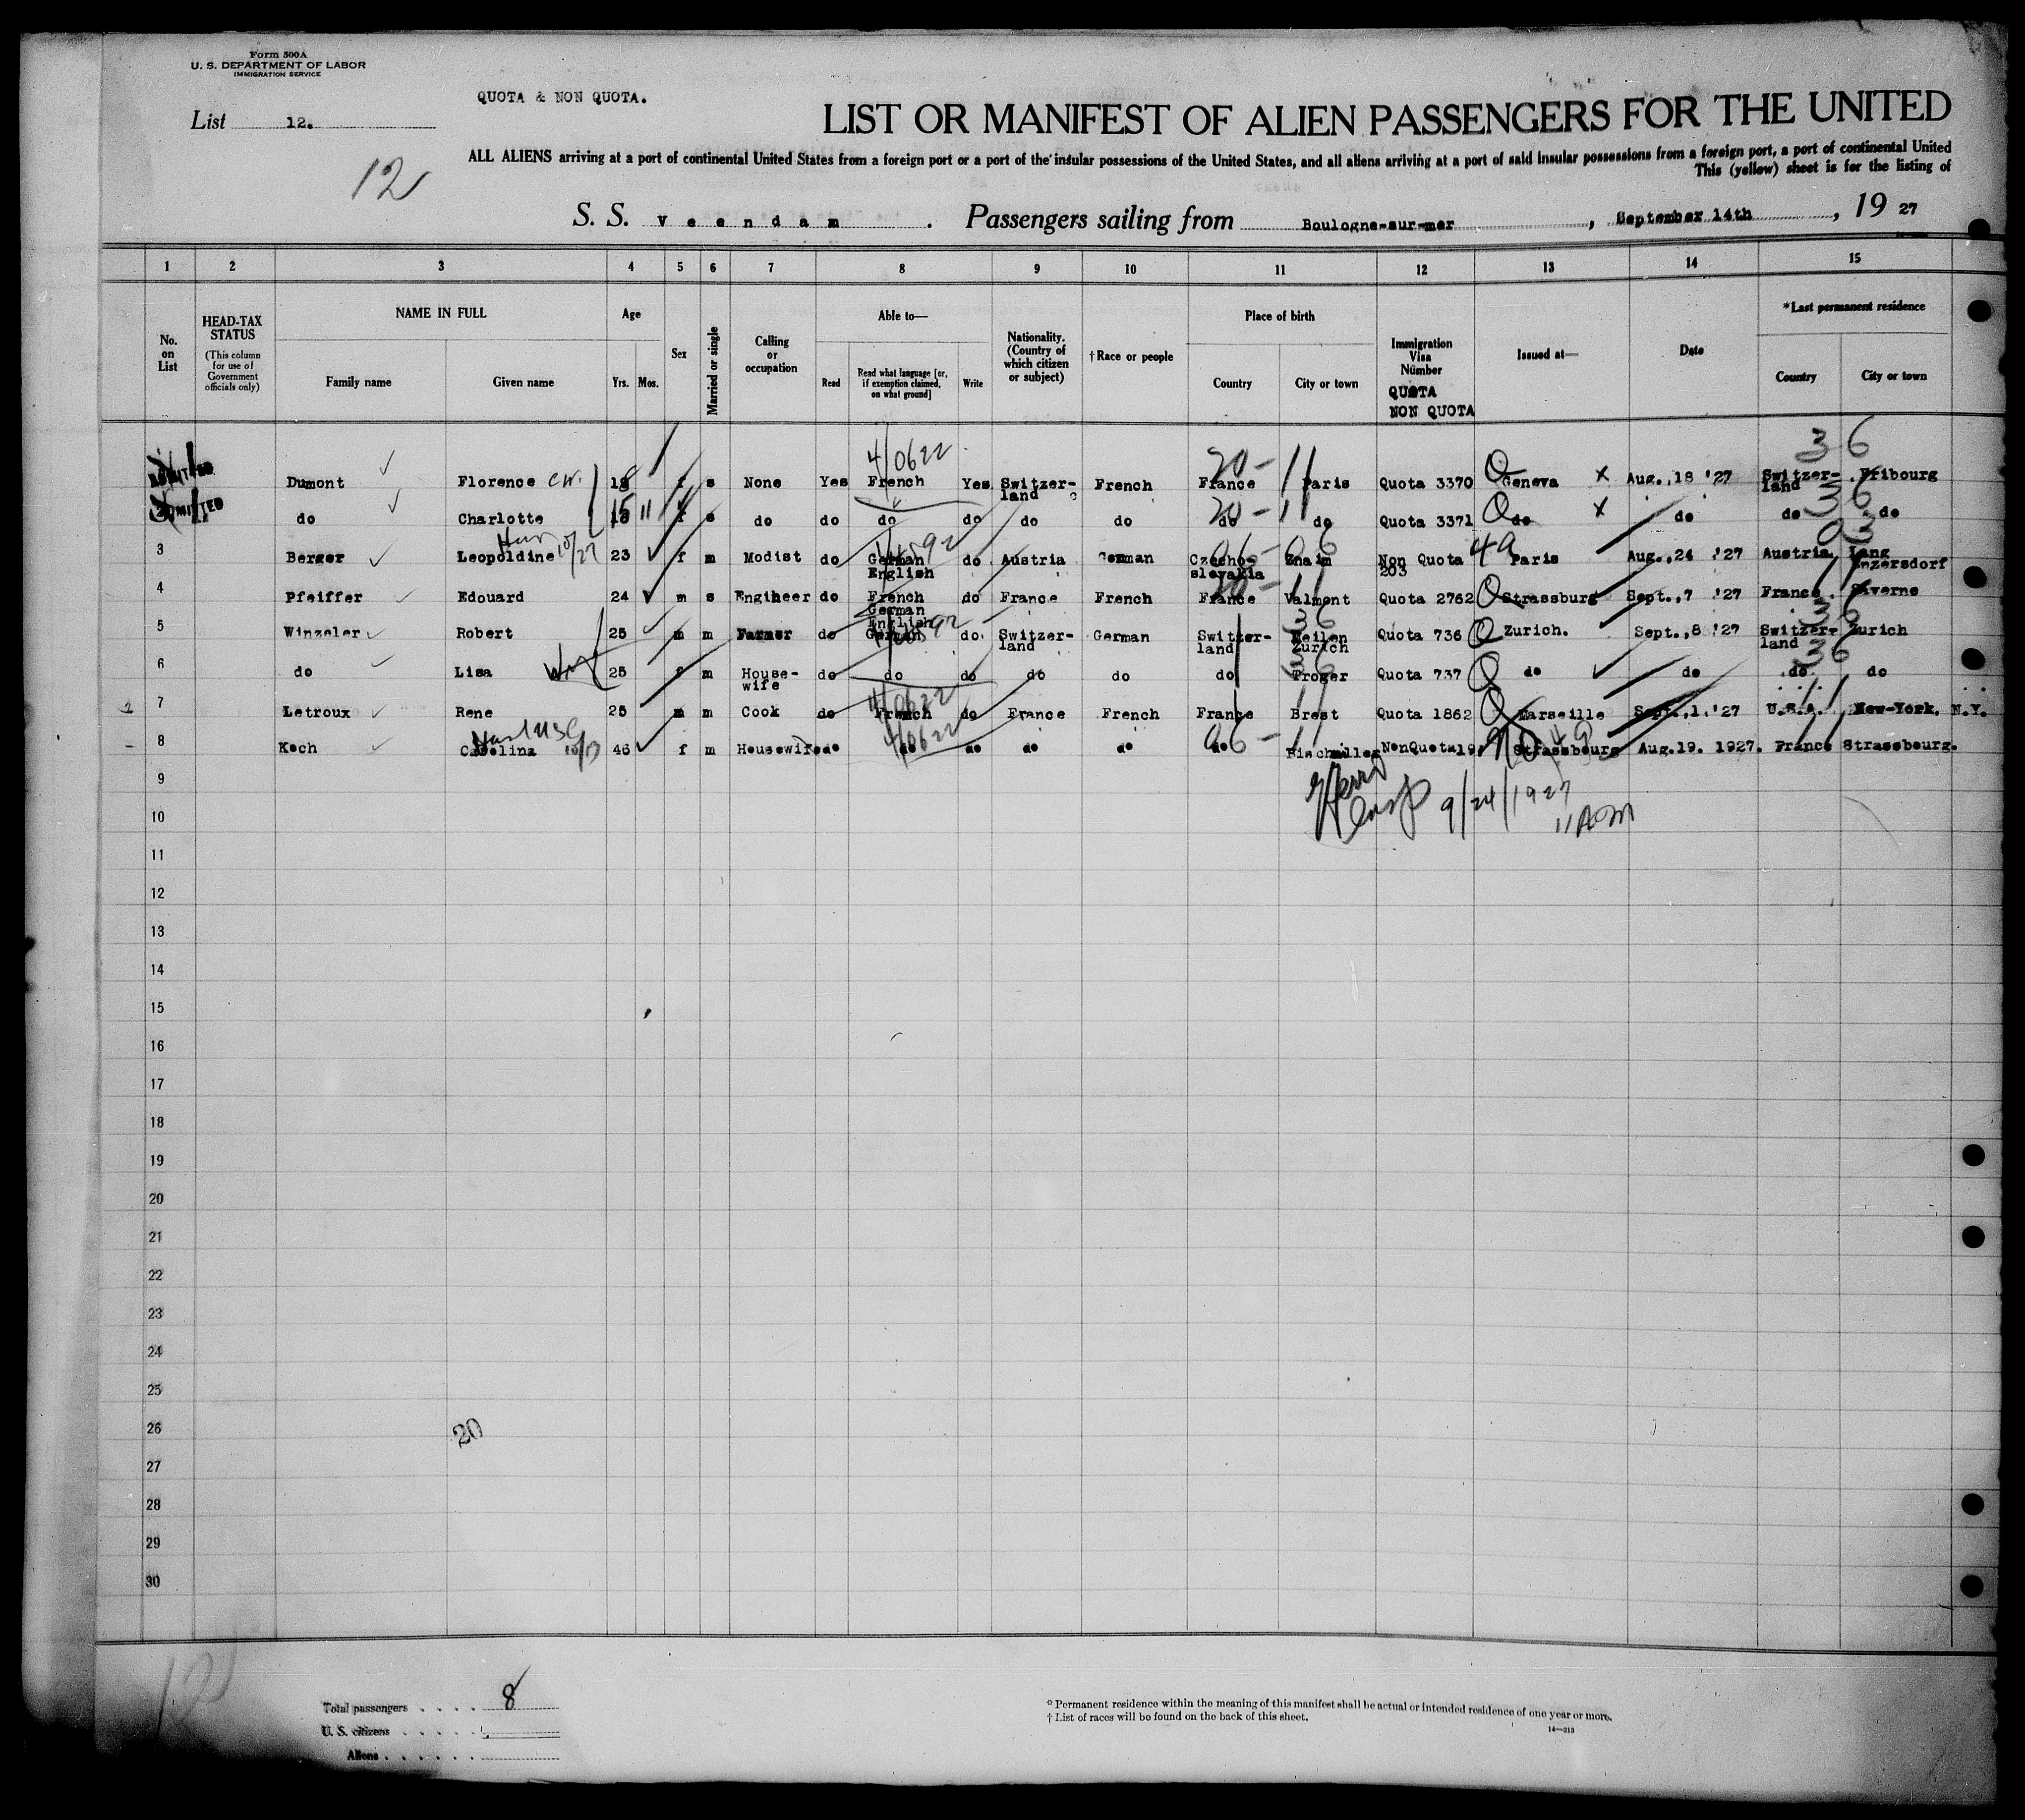 Form 500A
U. S. DEPARTMENT OF LABOR
IMMIGRATION SERVICE
QUOTA & NON QUOTA.
List 12.
12
LIST OR MANIFEST OF ALIEN PASSENGERS FOR THE UNITED
ALL ALIENS arriving at a port of continental United States from a foreign port or a port of the insular possessions of the United States, and all aliens arriving at a port of said insular possessions from a foreign port, a port of continental United
This (yellow) sheet is for the listing of
S. S. Veendam. Passengers sailing from Boulogne-sur-mer, September 14th, 19 27
1 2 3 4 5 6 7 8 9 10 11 12 13 14 15
No. on List
HEAD-TAX STATUS (This column for use of Government officials only)
NAME IN FULL
Family name Given name
Age
Yrs. Mos.
Sex
Married or single
Calling or occupation
Able to—
Read
Read what language [or, if exemption claimed, on what ground]
Write
Nationality. (Country of which citizen or subject)
†Race or people
Place of birth
Country City or town
Immigration Visa Number
QUOTA
NON QUOTA
Issued at—
Date
*Last permanent residence
Country City or town
ADMITTED Dumont Florence 18 f s None Yes French Yes Switzer-land French France Paris Quota 3370 Geneva Aug.,18 '27 Switzer-land Fribourg
ADMITTED do Charlotte 15 11 f s do do do do do do do do Quota 3371 do do do do
3 Berger Leopoldine 10/27 23 f m Modist do German English do Austria German Czecho-slovakia Znaim Non Quota 203 Paris Aug.,24 '27 Austria Lang Enzersdorf
4 Pfeiffer Edouard 24 m s Engineer do French German English do France French France Valmont Quota 2762 Strassburg Sept.,7 '27 France Saverne
5 Winzeler Robert 25 m m Farmer do German do Switzer-land German Switzer-land Meilen Zurich Quota 736 Zurich. Sept.,8 '27 Switzer-land Zurich
6 do Lisa 25 f m House-wife do do do do do do Troger Quota 737 do do do do
7 Letroux Rene 25 m m Cook do French do France French France Brest Quota 1862 Marseille Sept.,1.'27 U.S.A. New-York, N.Y.
8 Koch Carolina 46 f m Housewife do do do do do do Bischmiller NonQuota19 Strassbourg Aug.19. 1927. France Strassbourg.
9/24/1927
11 AM
9
10
11
12
13
14
15
16
17
18
19
20
21
22
23
24
25
26
20
27
28
29
30
12
Total passengers . . . . 8
U. S. citizens . . . . .
Aliens . . . . . .
* Permanent residence within the meaning of this manifest shall be actual or intended residence of one year or more.
† List of races will be found on the back of this sheet.
14—213